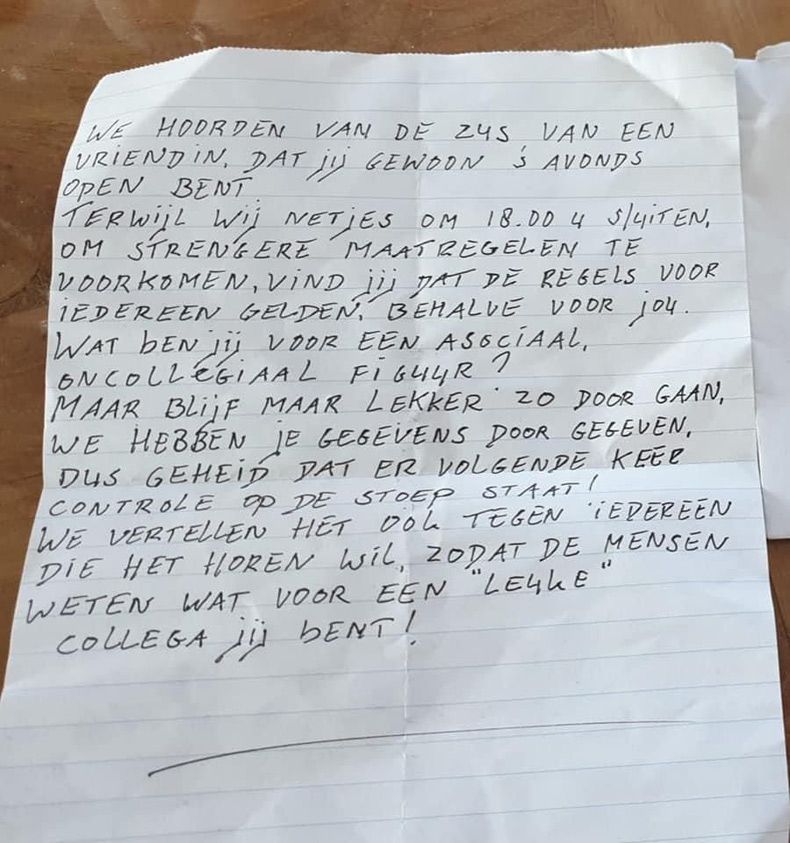 WE HOORDEN VAN DE ZUS VAN EEN
VRIENDIN, DAT jij GEWOON 's AVONDS
OPEN BENT
TERWIJL WIJ NETJES OM 18.00 U SLUITEN,
OM STRENGERE MAATREGELEN TE
VOORKOMEN, VIND jij DAT DE REGELS VOOR
IEDEREEN GELDEN, BEHALVE VOOR jou.
WAT bEN jij VOOR EEN ASOCIAAL,
ONCOLLEGIAAL FIGUUR?
MAAR BLIJF MAAR LEKKER ZO DOOR GAAN,
WE HEBBEN jE GEGEVENS DOOR GEGEVEN,
DUS GEHEID DAT ER VOLGENDE KEER
CONTROLE OP DE STOEP STAAT!
WE VERTELLEN HET OOK TEGEN IEDEREEN
DIE HET HOREN WIL, ZODAT DE MENSEN
WETEN WAT VOOR EEN "LEUKE"
COLLEGA jij bENT!